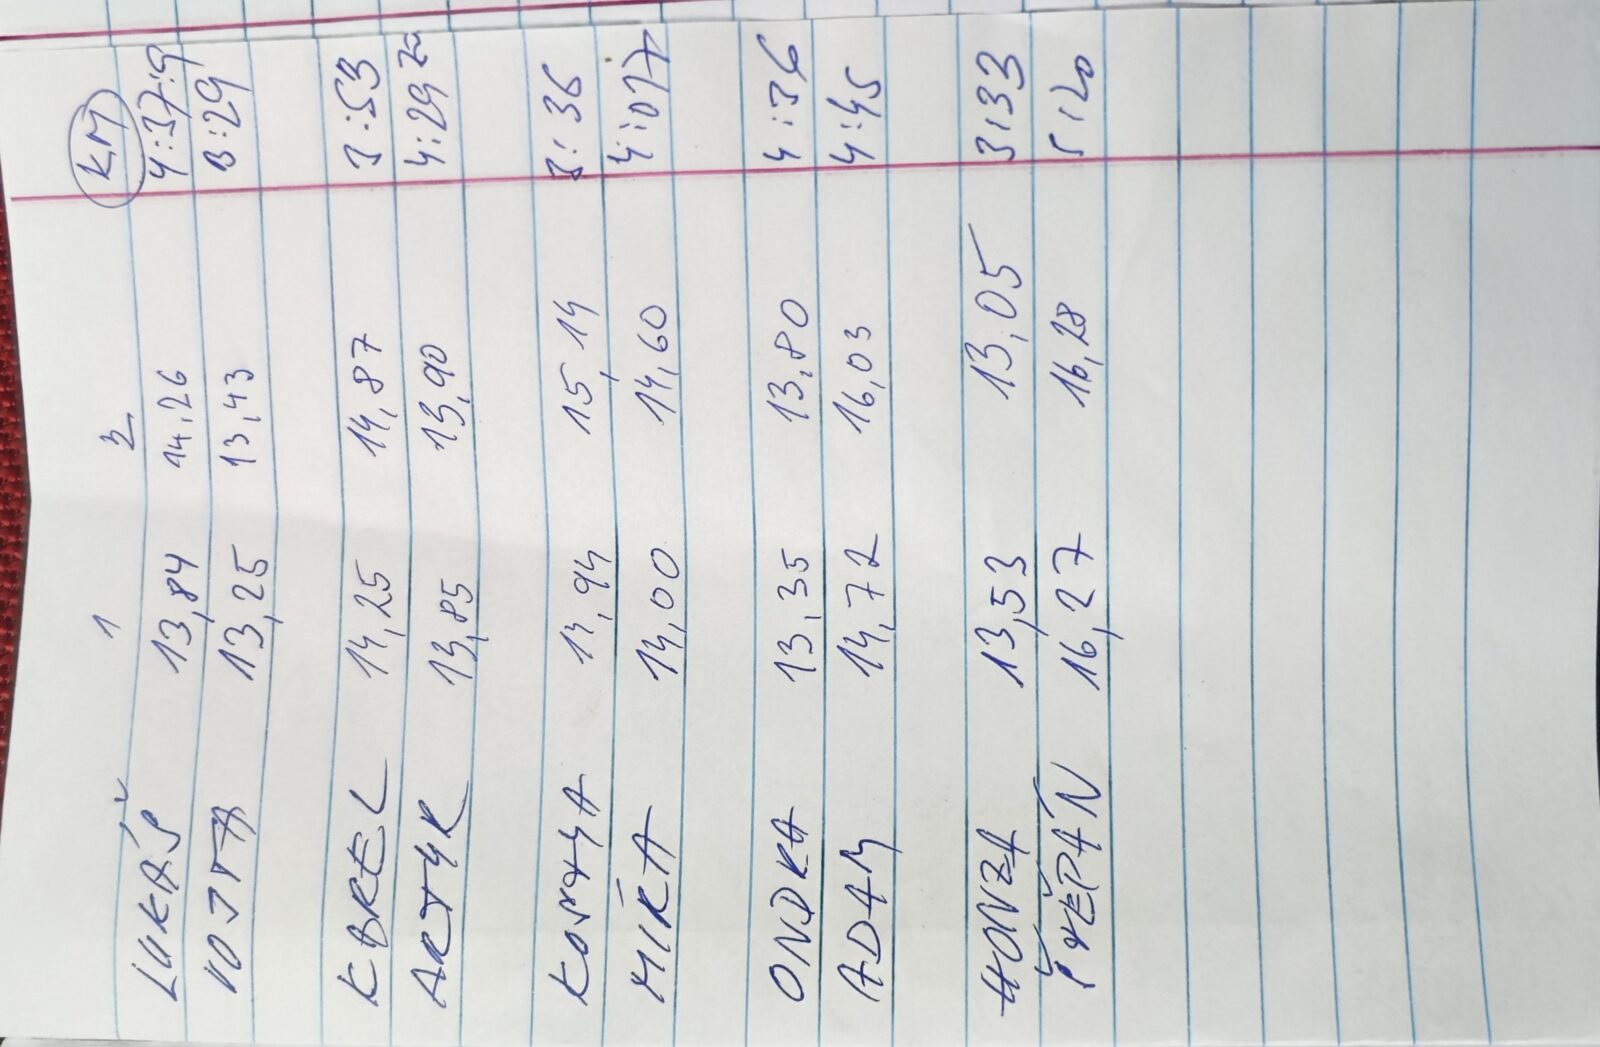 1 2. KM
LUKÁŠ 13,84 14,26 4:37:9
VOJTA 13,25 13,43 3:29
KAREL 14,25 14,87 3:53
ARTYK 13,85 13,90 4:29
KOSTYA 14,94 15,14 3:36
MÍRA 14,00 14,60 4:07
ONDRA 13,35 13,80 4:36
ADAM 14,72 16,03 4:45
HONZA 13,53 13,05 3:33
ŠTĚPÁN 16,27 16,28 5:20